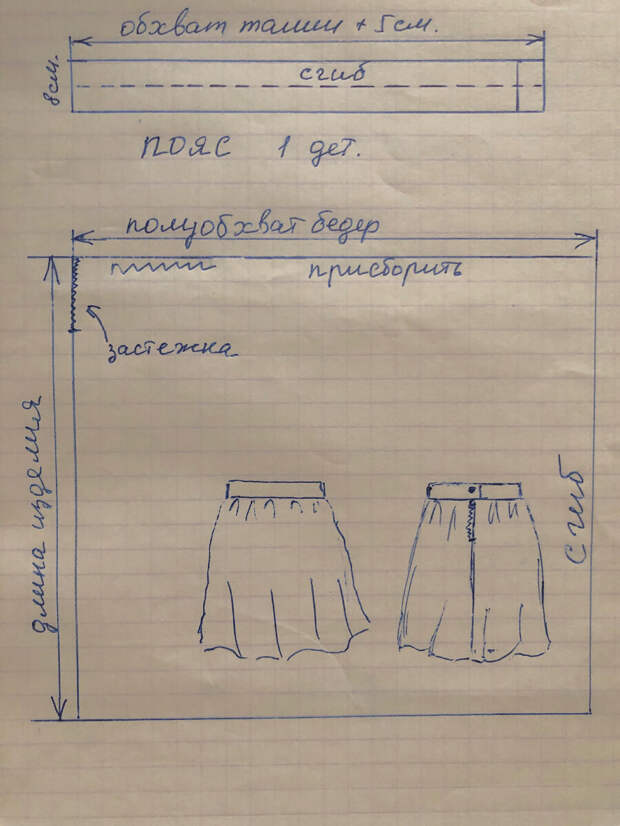 обхват талии + 5см.
8см.
сгиб
ПОЯС 1 дет.
полуобхват бедер
присборить
застежка
длина изделия
сгиб